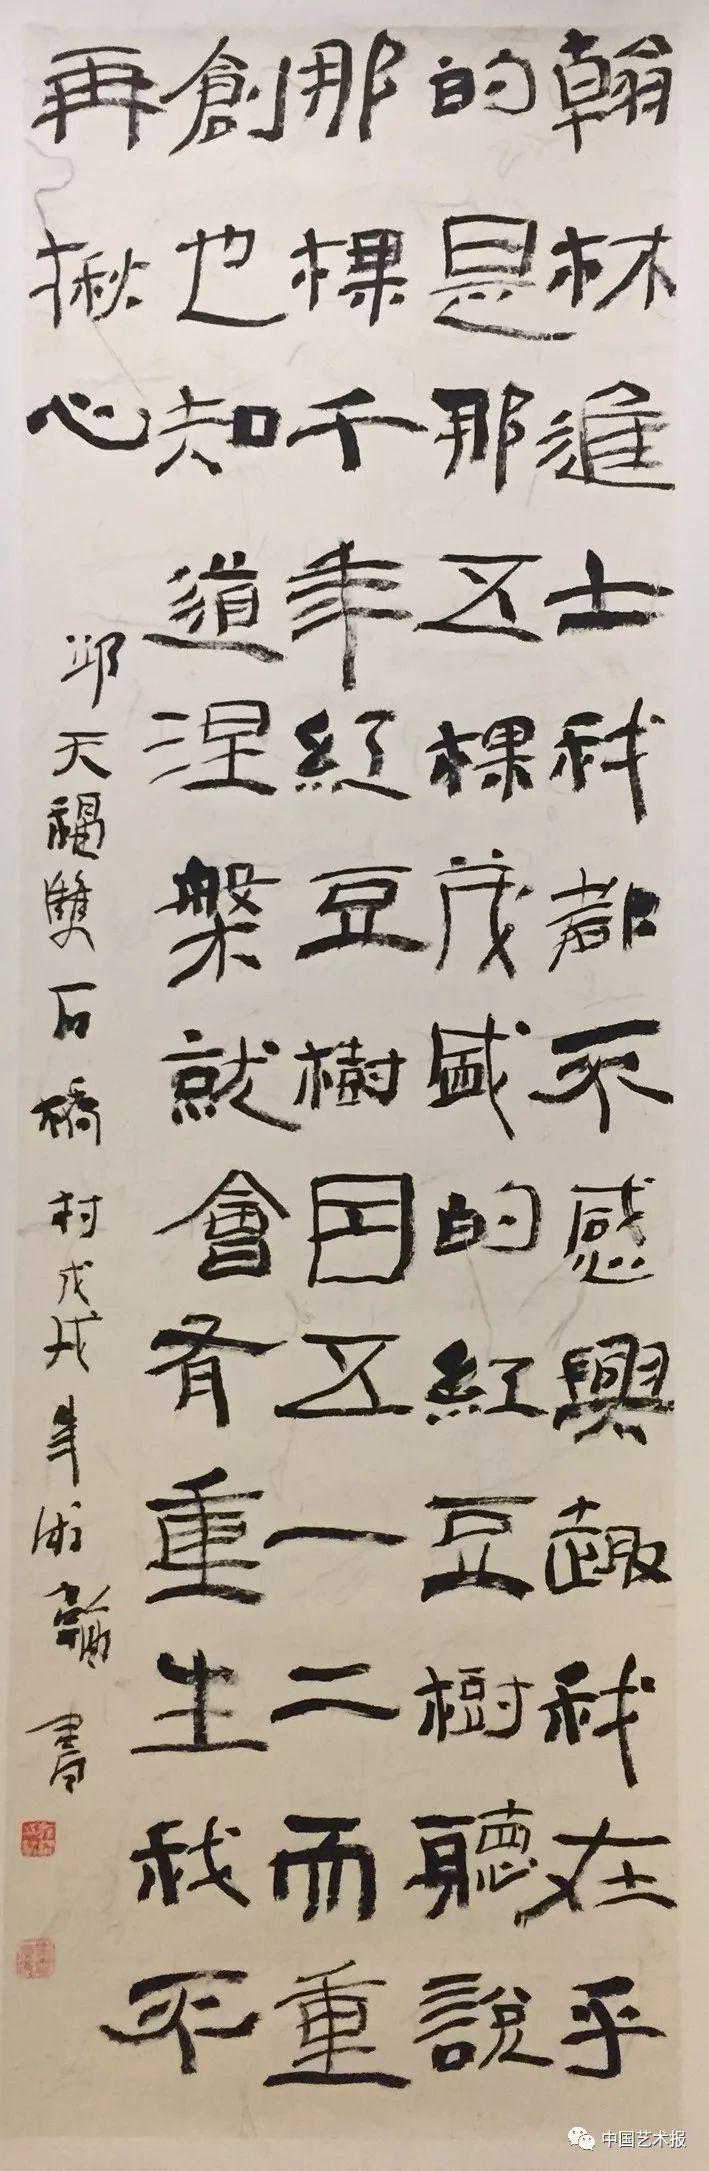 翰林進士我都不感興趣我在乎
的是那五棵茂盛的紅豆樹聽說
那棵千年紅豆樹因五一二而重
創也知道涅槃就會有重生我不
再揪心
邛天禔雙石橋村戊戌年湘翰書
中国艺术报